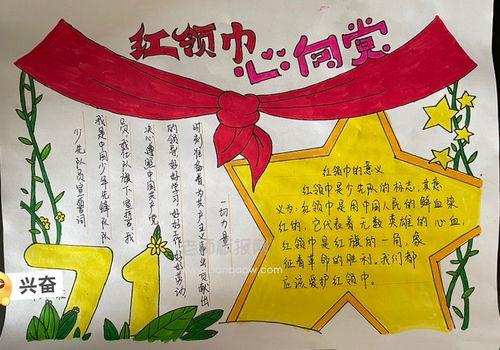 红领巾
心向党
少先队员宣誓词
我是中国少年先锋队队
员，我在队旗下宣誓：我
决心遵照中国共产党
的领导，好好学习，好好工作，好好劳动
时刻准备着为共产主义事业贡献出
一切力量
红领巾的意义
红领巾是少先队的标志，其意
义为：红领巾是用中国人民的鲜血染
红的，它代表着无数英雄的心血，
红领巾是红旗的一角，象
征着革命的胜利。我们都
应该爱护红领巾。
71
兴奋